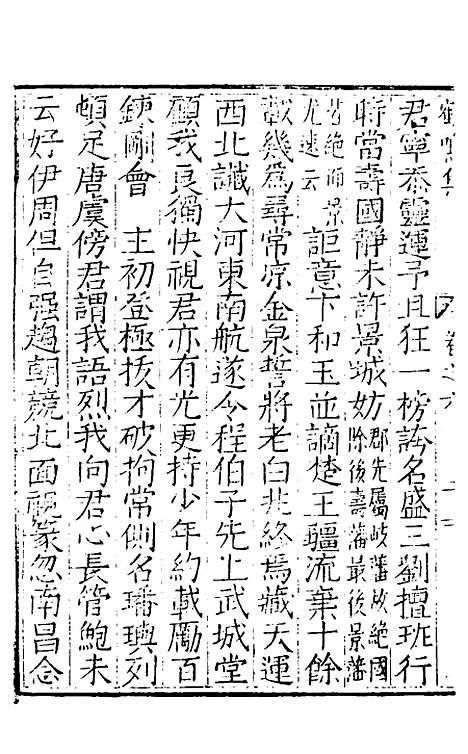 君寧忝靈運予且狂一榜誇名盛三劉擅班行
時當壽國靜未許景城妨郡先屬岐藩故絕國除後壽藩最後景藩
若絕而景尤速云詎意卞和玉並謫楚王疆流棄十餘
載幾爲尋常凉金泉誓將老白兆終焉藏天運
西北讖大河東南航遂令程伯子先上武城堂
顧我良獨快視君亦有光更持少年約載勵百
鍊剛會　主初登極拔才破拘常側名璠璵列
頓足唐虞傍君謂我語烈我向君心長管鮑未
云好伊周但自强趨朝競北面視篆忽南昌合